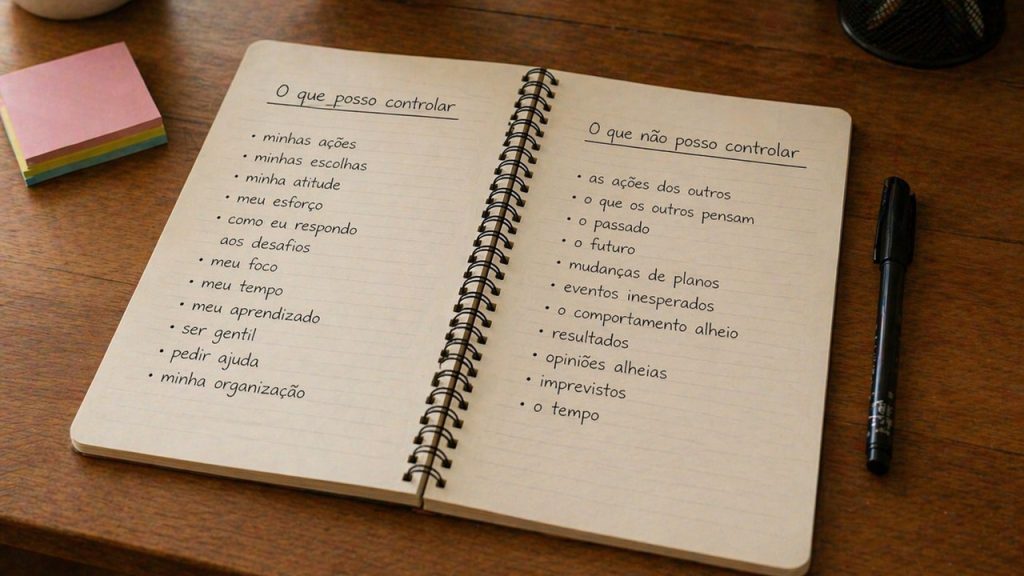 O que posso controlar
• minhas ações
• minhas escolhas
• minha atitude
• meu esforço
• como eu respondo
aos desafios
• meu foco
• meu tempo
• meu aprendizado
• ser gentil
• pedir ajuda
• minha organização
O que não posso controlar
• as ações dos outros
• o que os outros pensam
• o passado
• o futuro
• mudanças de planos
• eventos inesperados
• o comportamento alheio
• resultados
• opiniões alheias
• imprevistos
• o tempo